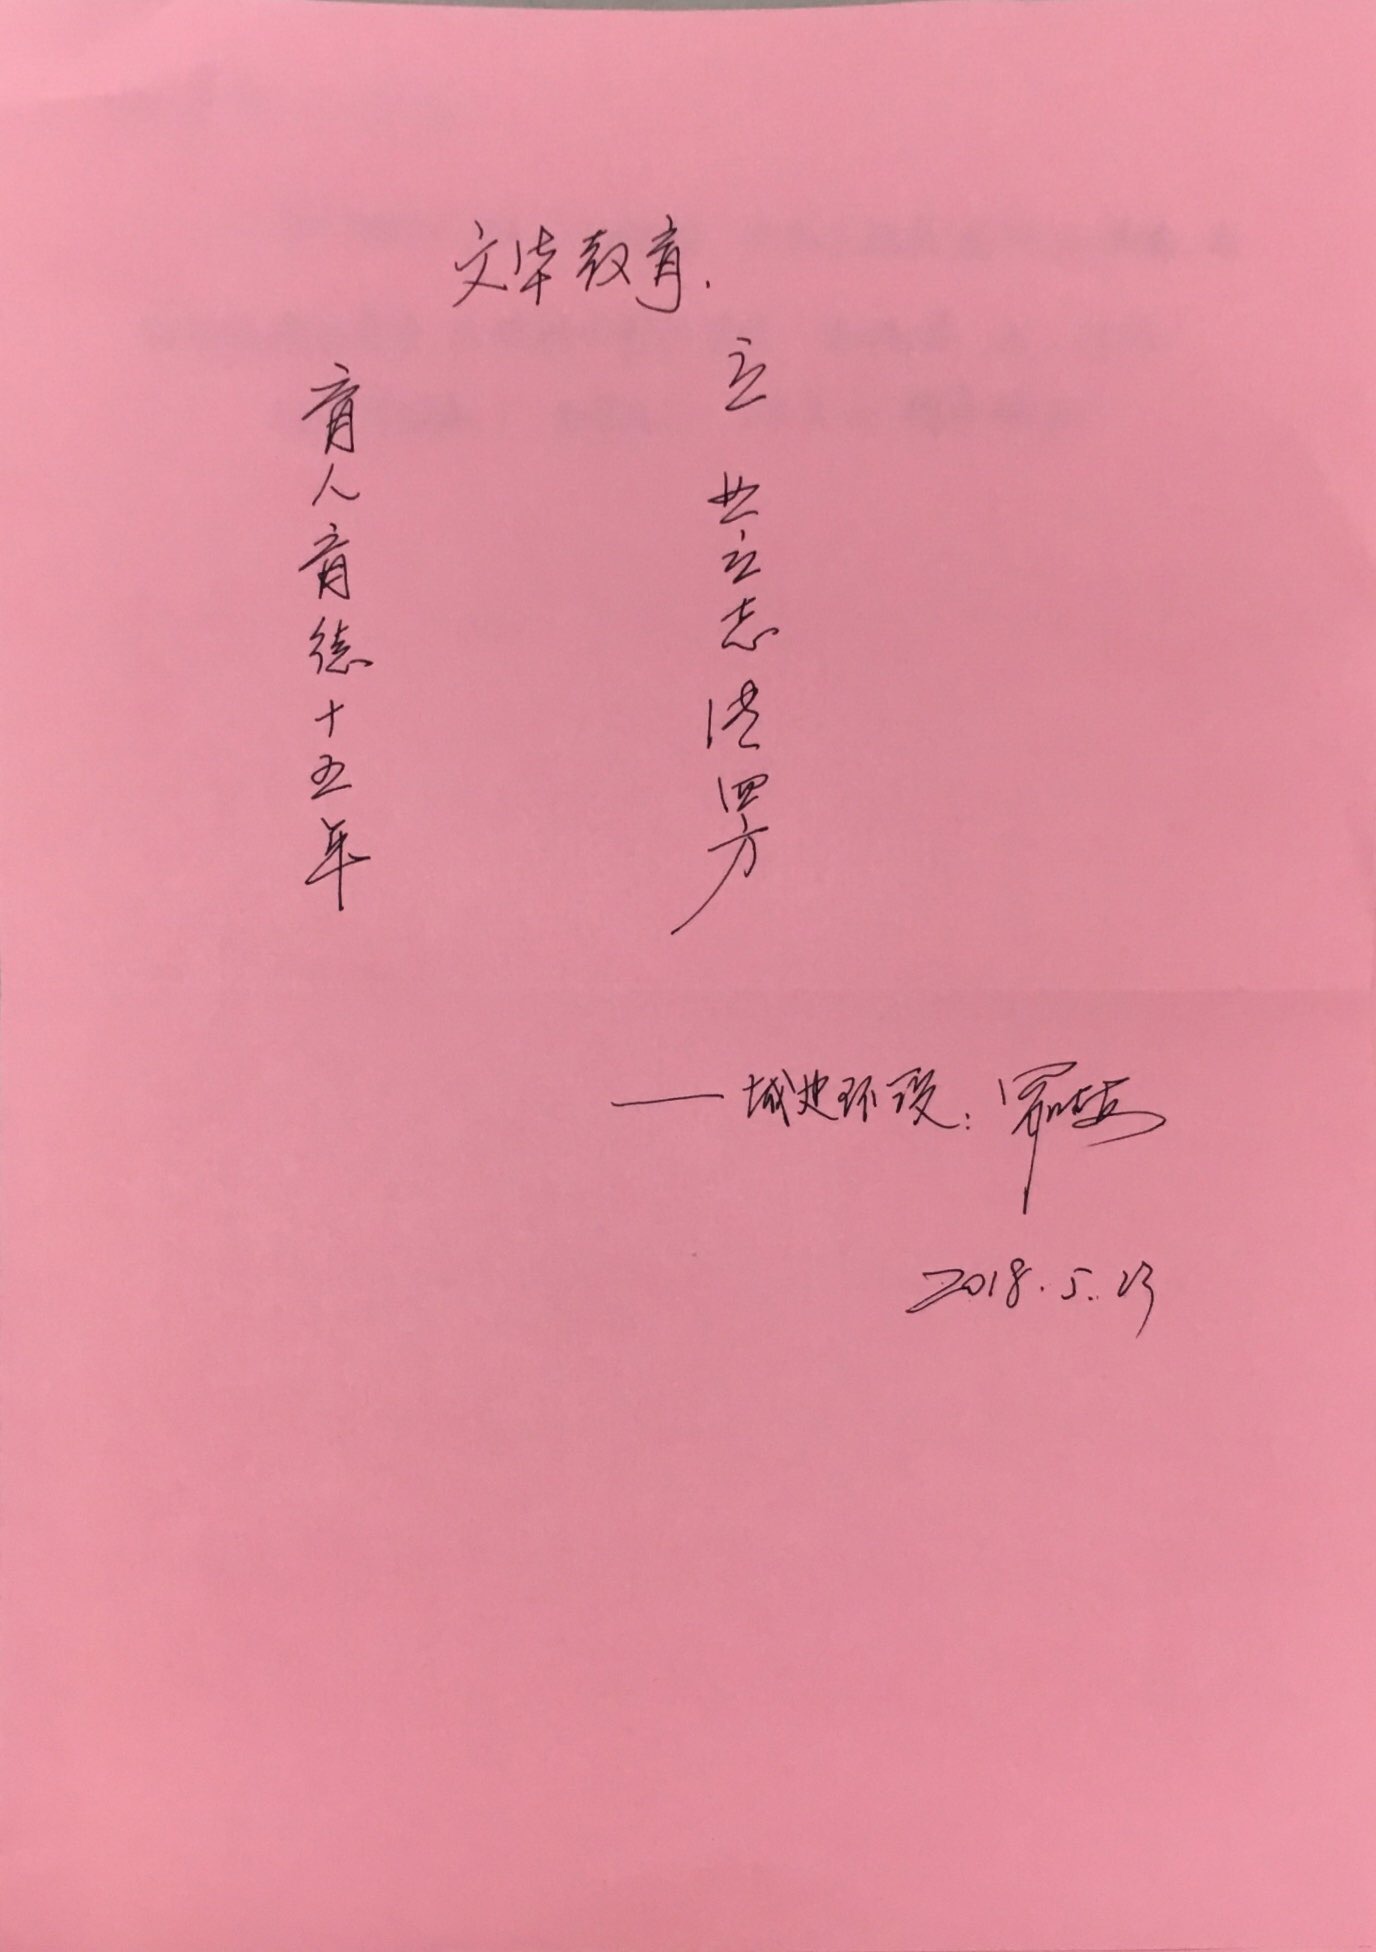 文华教育.
育人育德十五年
立业立志洪四方
——城建环设:
2018.5.23